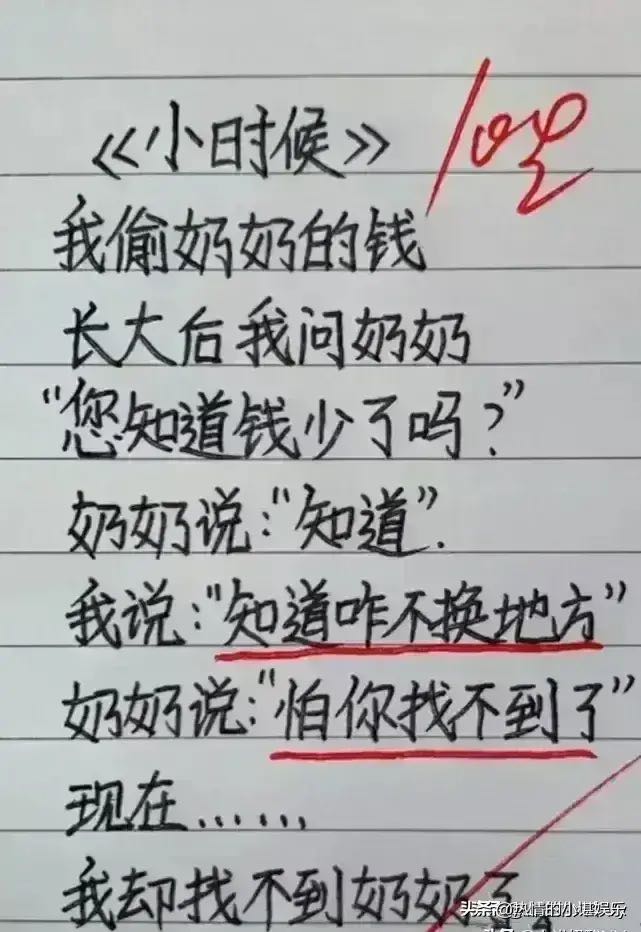 《小时候》
我偷奶奶的钱
长大后我问奶奶
“您知道钱少了吗?”
奶奶说:“知道”.
我说:“知道咋不换地方”
奶奶说:“怕你找不到了”
现在......
我却找不到奶奶了
头条@热情的小堪娱乐